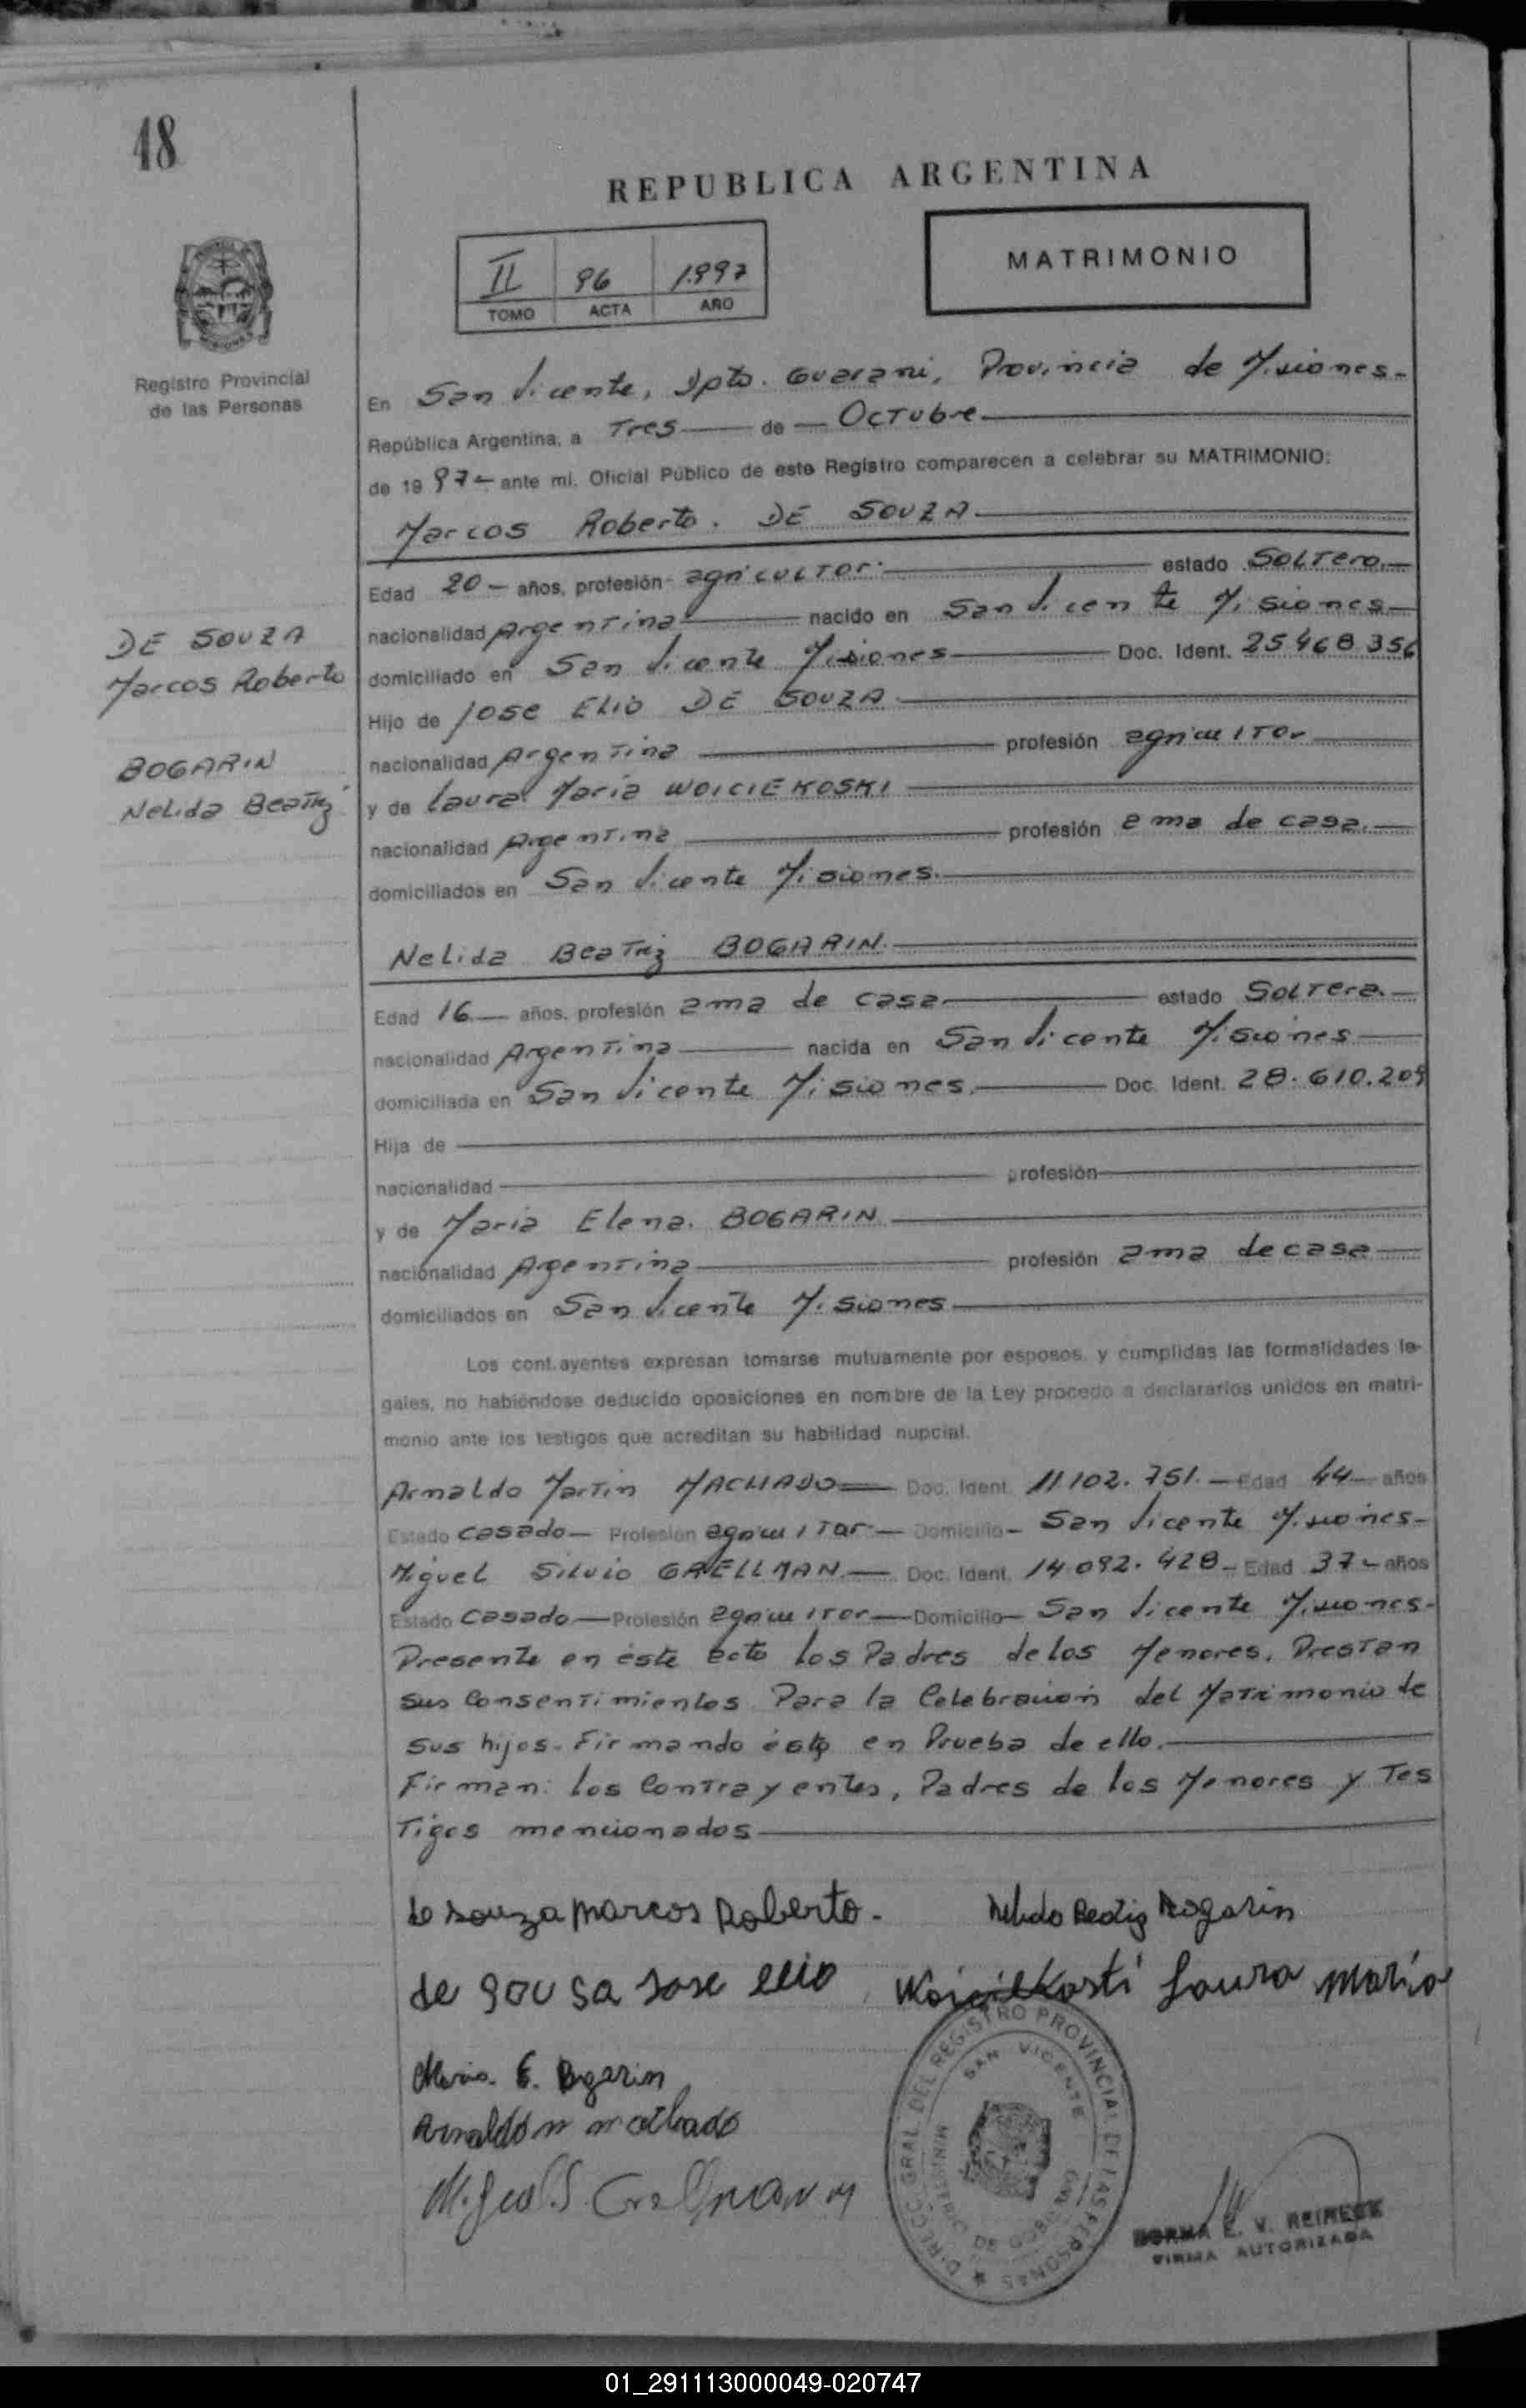 48
REPUBLICA ARGENTINA
II 96 1.997
TOMO ACTA AÑO
MATRIMONIO
Registro Provincial
de las Personas
En San Vicente, Dpto. Guarani, Provincia de Misiones.-
República Argentina, a Tres de Octubre
de 1997- ante mi, Oficial Público de este Registro comparecen a celebrar su MATRIMONIO:
Marcos Roberto. DE SOUZA
Edad 20 - años, profesión agricultor. estado Soltero.
nacionalidad Argentina nacido en San Vicente Misiones
domiciliado en San Vicente Misiones Doc. Ident. 25.468.356
Hijo de Jose Elio DE SOUZA
nacionalidad Argentina profesión agricultor
y de Laura Maria WOICIEKOSKI
nacionalidad Argentina profesión ama de casa.
domiciliados en San Vicente Misiones.
DE SOUZA
Marcos Roberto
BOGARIN
Nelida Beatriz
Nelida Beatriz BOGARIN.
Edad 16 años, profesión ama de casa estado Soltera.
nacionalidad Argentina nacida en San Vicente Misiones
domiciliada en San Vicente Misiones. Doc. Ident. 28.610.209
Hija de
nacionalidad profesión
y de Maria Elena. BOGARIN
nacionalidad Argentina profesión ama de casa
domiciliados en San Vicente Misiones
Los cont.ayentes expresan tomarse mutuamente por esposos, y cumplidas las formalidades le-
gales, no habiéndose deducido oposiciones en nombre de la Ley procedo a declararlos unidos en matri-
monio ante los testigos que acreditan su habilidad nupcial.
Arnaldo Martin MACHADO Doc. Ident. 11.102.751.- Edad 44 años
Estado casado - Profesión agricultor - Domicilio - San Vicente Misiones-
Miguel Silvio GRELLMAN.- Doc. Ident. 14.092.428 - Edad 37 - años
Estado casado - Profesión agricultor - Domicilio - San Vicente Misiones-
Presente en éste acto los Padres de los Menores, Prestan
sus Consentimientos Para la Celebración del Matrimonio de
sus hijos. Firmando ésto en Prueba de ello.
Firman: los Contrayentes, Padres de los Menores y Tes
Tigos mencionados
de souza marcos Roberto.
Nelida Beatriz Bogarin
de sousa Jose elio
Woiciekoski Laura Maria
Maria. E. Bogarin
Arnaldo m machado
Miguel S. Grellmann
DIRECC. GRAL. DEL REGISTRO PROVINCIAL DE LAS PERSONAS
SAN VICENTE
MINISTERIO DE GOBIERNO
NORMA E. V. REINECK
FIRMA AUTORIZADA
01_291113000049-020747